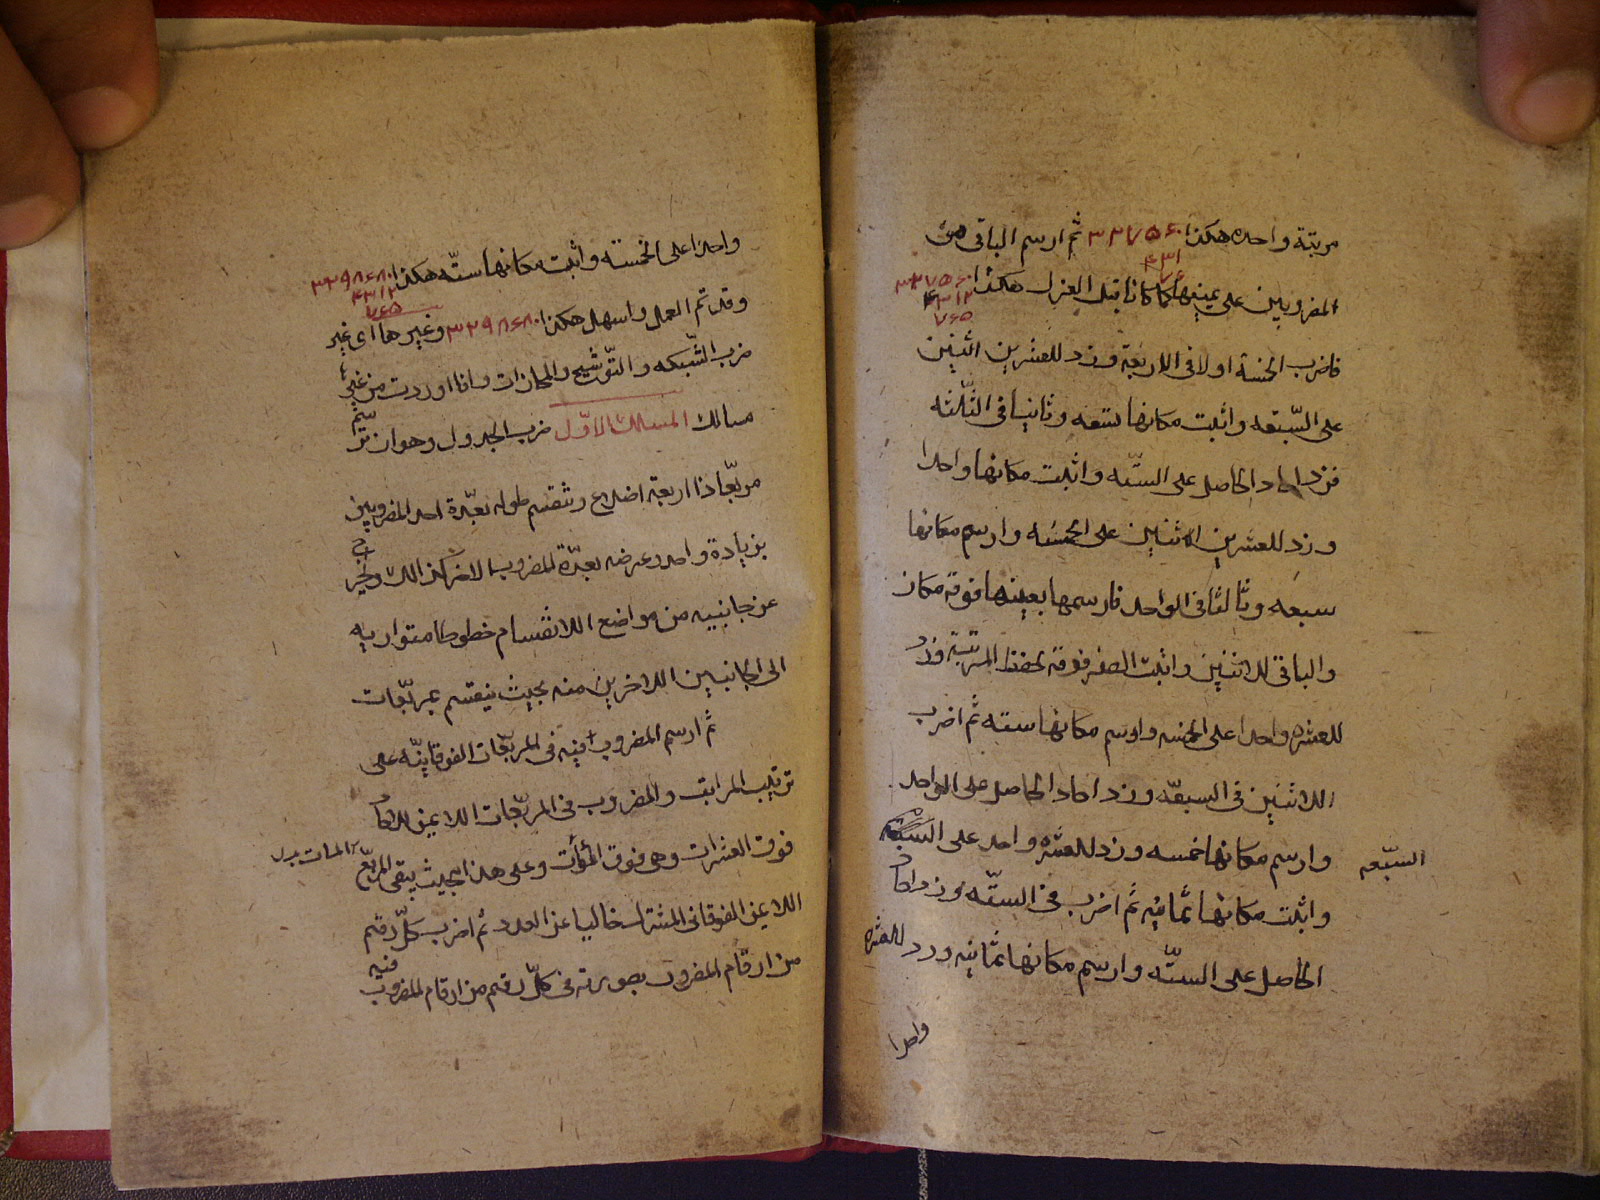 مرتبة واحده هكذا ٣٣٧٥٤٠ ثم ارسم الباقى من
٤٣١
٧٤
المضروبين على يمينها كما كانا قبل العزل هكذا ٣٣٧٥٤٠
٤٣١٢
٧٤٥
فاضرب الخمسة اولا فى الاربعة وزد للعشرين اثنين
على السّبعه واثبت مكانها تسعه وثانيا فى الثّلثه
فزد احاد الحاصل على الستّه واثبت مكانها واحدا
وزد للعشرين اثنين على الخمسه وارسم مكانها
سبعه وثالثا فى الواحد فارسمها بعينها فوقه مكان
والباقى للاثنين واثبت الصفر فوقه لحفظ المرتبة وزد
للعشره واحدا على الخمسه وارسم مكانها سته ثم اضرب
الاثنين فى السبعّه وزد احاد الحاصل على الواحد
وارسم مكانها خمسه وزد للعشره واحد على
السّبعه
واثبت مكانها ثمانيه ثم اضرب فى الستّه وزد احاد
الحاصل على الستّه وارسم مكانها ثمانيه وزد للعشره
واحدا
واحدا على الخمسته واثبت مكانها ستّه هكذا ٣٣٩٨٤٨٠
٤٣١٢
٧٤٥
وقد تم العمل واسهل هكذا ٣٢٩٨٤٨٠ وغيرها اى غير
ضرب الشّبكه والتّوشيح والمحاذات وانا اوردت من غير
مسالك المسلك الاوّل ضرب الجدول وهو ان ترسم
مربّعا ذا اربعة اضلاع وتقسم طوله بعدّة احد المضروبين
بزيادة واحد وعرضه بعدّة المضروب الاخر كذالك وتخرج
عن جانبيه من مواضع الانقسام خطوطا متوازيه
الى الجانبين الاخرين منه بحيث ينقسم بمربّعات
ثم ارسم المضروب فيه فى المربّعات الفوقانيّه على
ترتيب المراتب والمضروب فى المربّعات الايمن الاحاد
فوق العشرات وهى فوق المأت وعلى هذا بحيث يبقى المربّع
المات بدل
الايمن الفوقانى المشترك خاليا عن العدد ثم اضرب كلّ رقم
من ارقام المضروب بصورته فى كلّ رقم من ارقام المضروب فيه